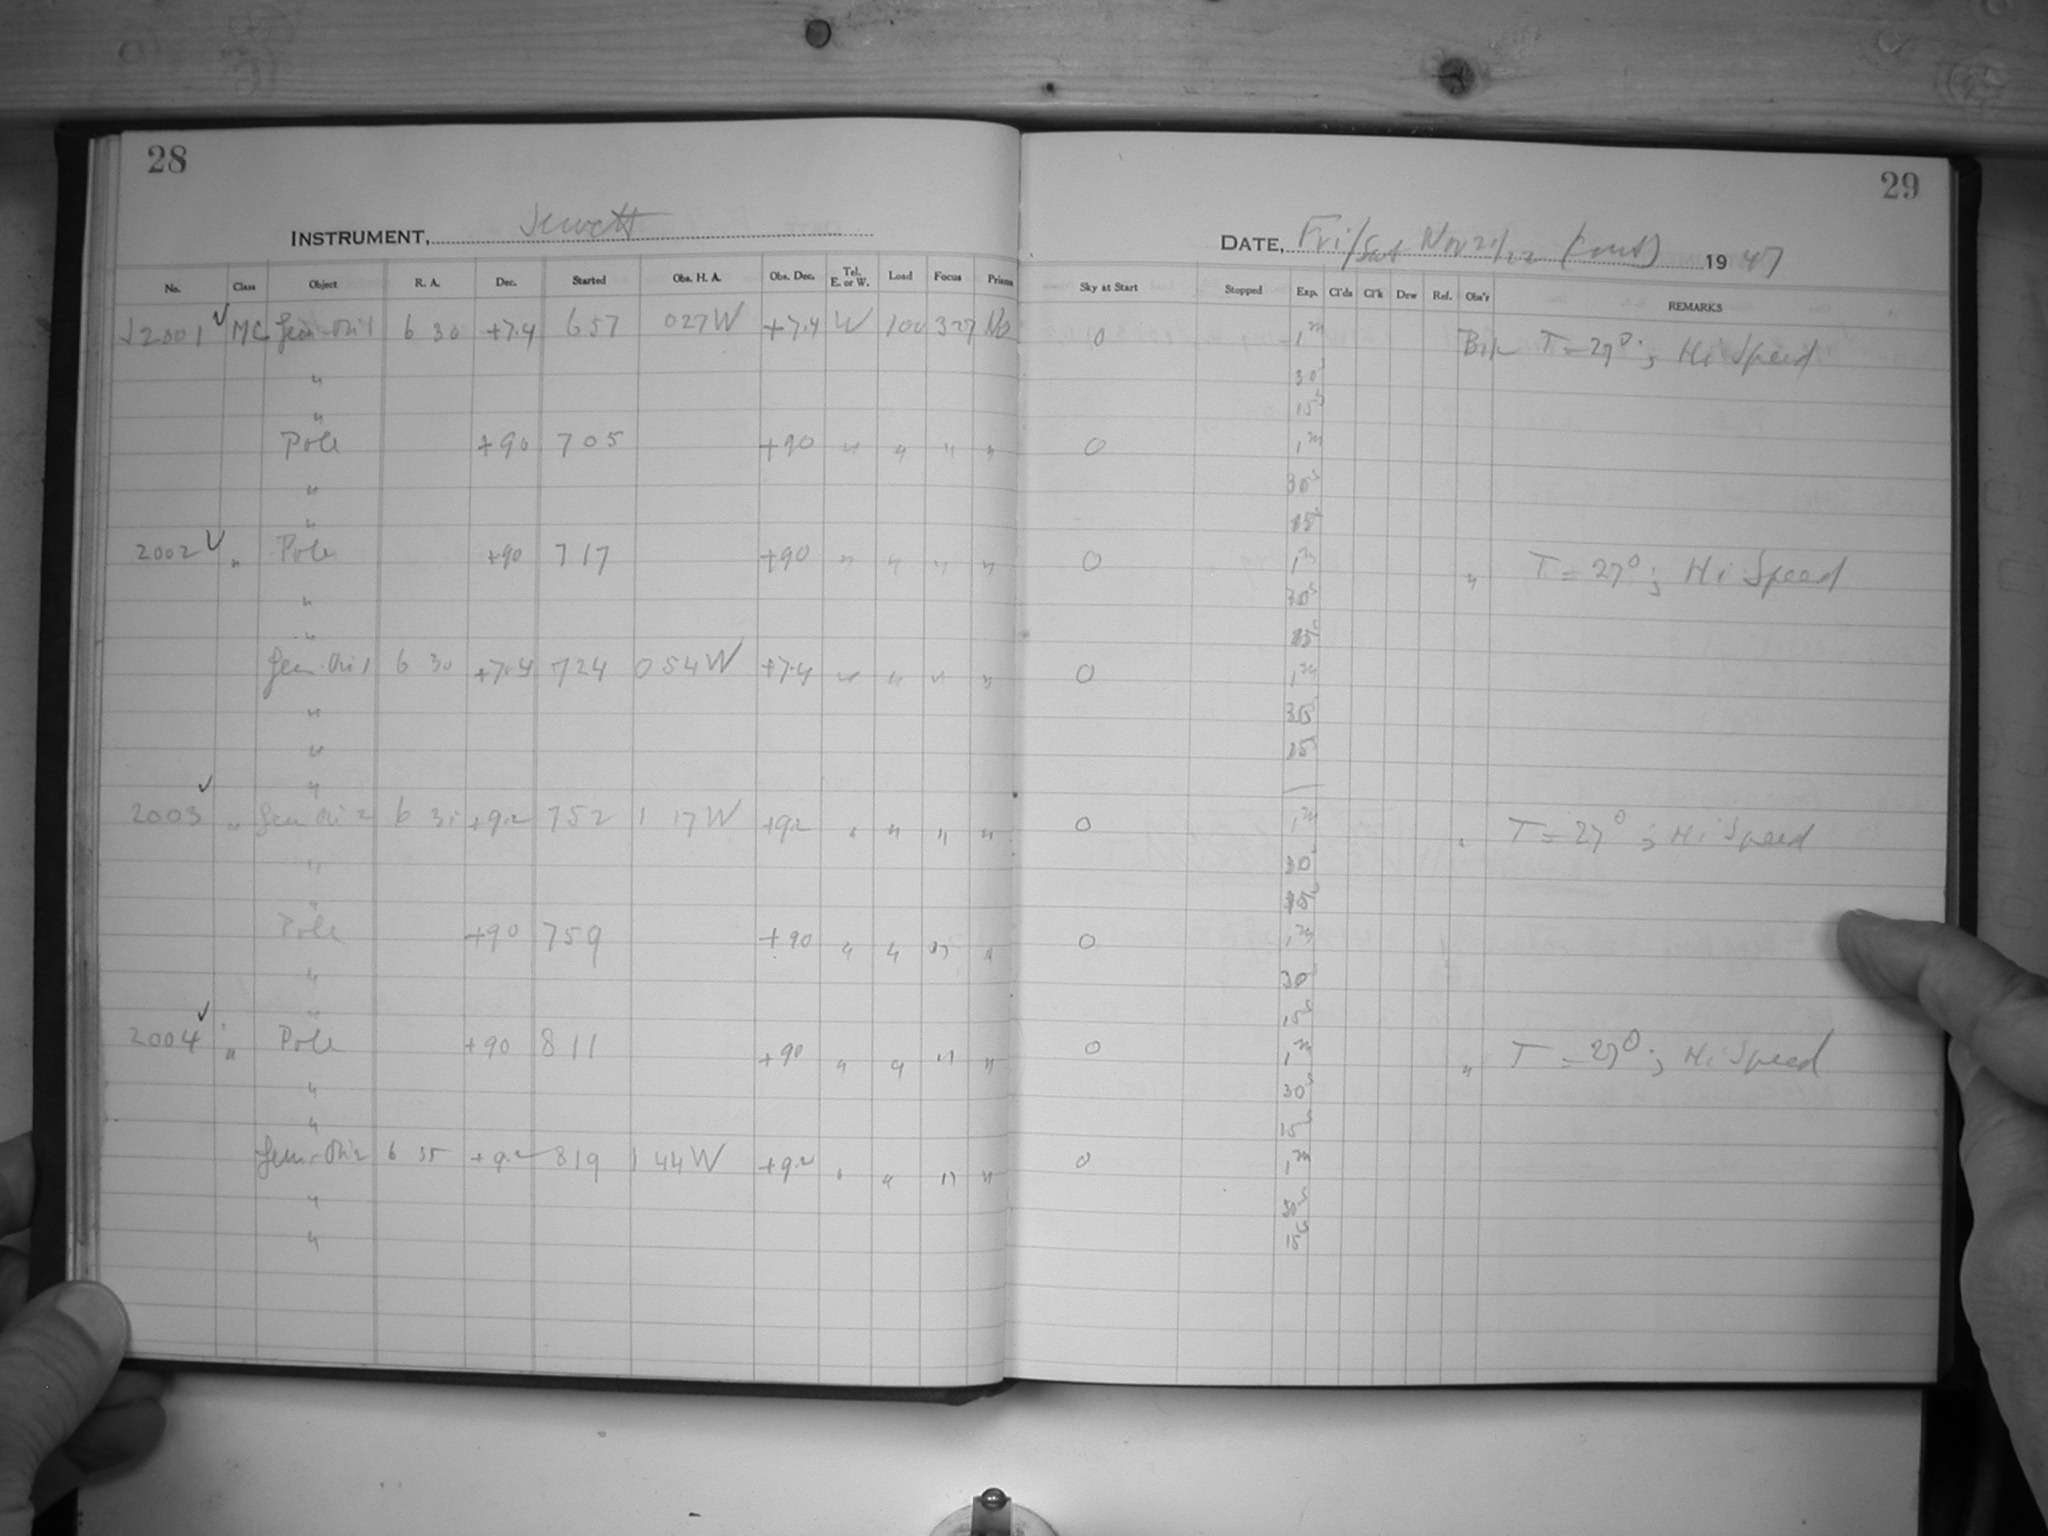 28
29
INSTRUMENT, Jewett
DATE, Fri/Sat Nov 21/22 (cont) 1947
No. Class Object R. A. Dec. Started Obs. H. A. Obs. Dec. Tel. E. or W. Load Focus Prisms Sky at Start Stopped Exp. Cl'ds Cl'k Dew Ref. Obs'r REMARKS
J2001 ✓ MC Gem-Ori 1 6 30 +7.4 657 027W +7.4 W 100 327 No 0 1m T = 27°; Hi Speed
" 30s
" 15s
Pole +90 705 +90 " " " " 0 1m
" 30s
" 15s
2002 ✓ " Pole +90 717 +90 " " " " 0 1m " T = 27°; Hi Speed
" 30s
" 15s
Gem-Ori 1 6 30 +7.4 724 054W +7.4 " " " " 0 1m
" 30s
" 15s
"
2003 ✓ " Gem Ori 2 6 35 +9.2 752 1 17W +9.2 " " " " 0 1m " T = 27°; Hi Speed
" 30s
" 15s
Pole +90 759 +90 " " " " 0 1m
" 30s
" 15s
2004 ✓ " Pole +90 811 +90 " " " " 0 1m " T = 27°; Hi Speed
" 30s
" 15s
Gem-Ori 2 6 35 +9.2 819 1 44W +9.2 " " " " 0 1m
" 30s
" 15s